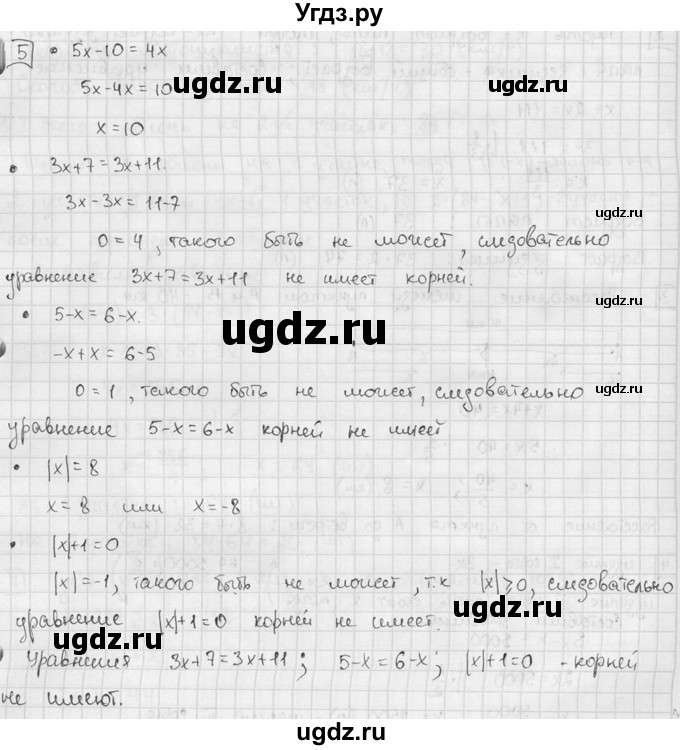 Угдз.ру
5 • 5x-10=4x
5x-4x=10
x=10
• 3x+7=3x+11.
3x-3x=11-7
0=4, такого быть не может, следовательно
уравнение 3x+7=3x+11 не имеет корней.
• 5-x=6-x.
-x+x=6-5
0=1, такого быть не может, следовательно
уравнение 5-x=6-x корней не имеет
• |x|=8
x=8 или x=-8
• |x|+1=0
|x|=-1, такого быть не может, т.к |x|⩾0, следовательно
уравнение |x|+1=0 корней не имеет.
Уравнения 3x+7=3x+11; 5-x=6-x; |x|+1=0 - корней
не имеют.
ugdz.ru
ugdz.ru
ugdz.ru
ugdz.ru
ugdz.ru
ugdz.ru
ugdz.ru
ugdz.ru
ugdz.ru
ugdz.ru